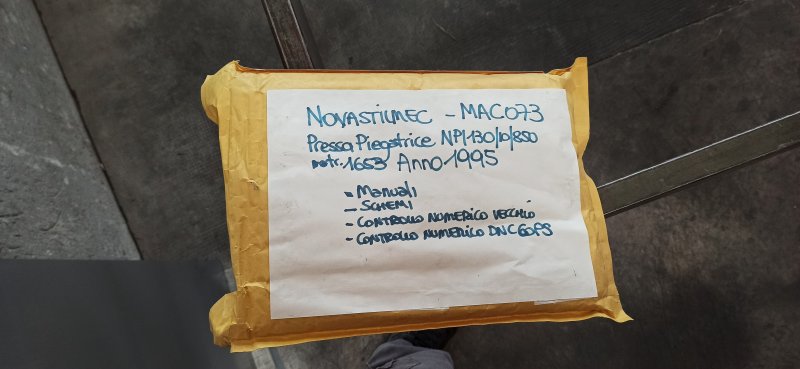 NOVASTILMEC - MAC073
Pressa Piegatrice NPI-130/10/850
matr. 1653 Anno 1995
- Manuali
- SCHEMI
- CONTROLLO NUMERICO VECCHIO
- CONTROLLO NUMERICO DNC60PS